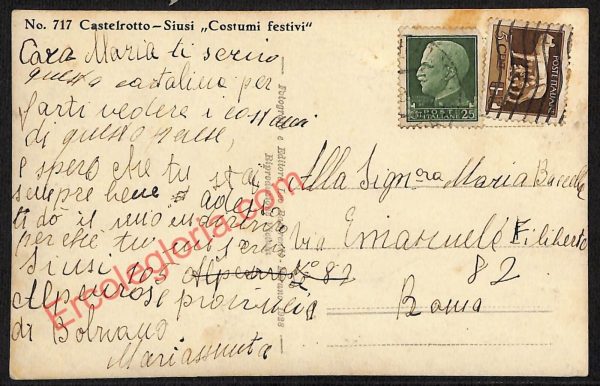 No. 717 Castelrotto – Siusi „Costumi festivi"
Cara Maria ti scrivo
questa cartolina per
farti vedere i costumi
di questo paese,
e spero che tu stai
sempre bene e adesso
ti dò il mio indirizzo
perché tu mi scriva
Siusi 105
Alpenrose provincia
di Bolzano
Mariassunta
Alla Signora Maria
Via Emanuele Filiberto
N° 82
82
Roma
POSTE ITALIANE
25
POSTE ITALIANE
5 CENT
Fotografia e Editore
1928
Ercolegloria.com